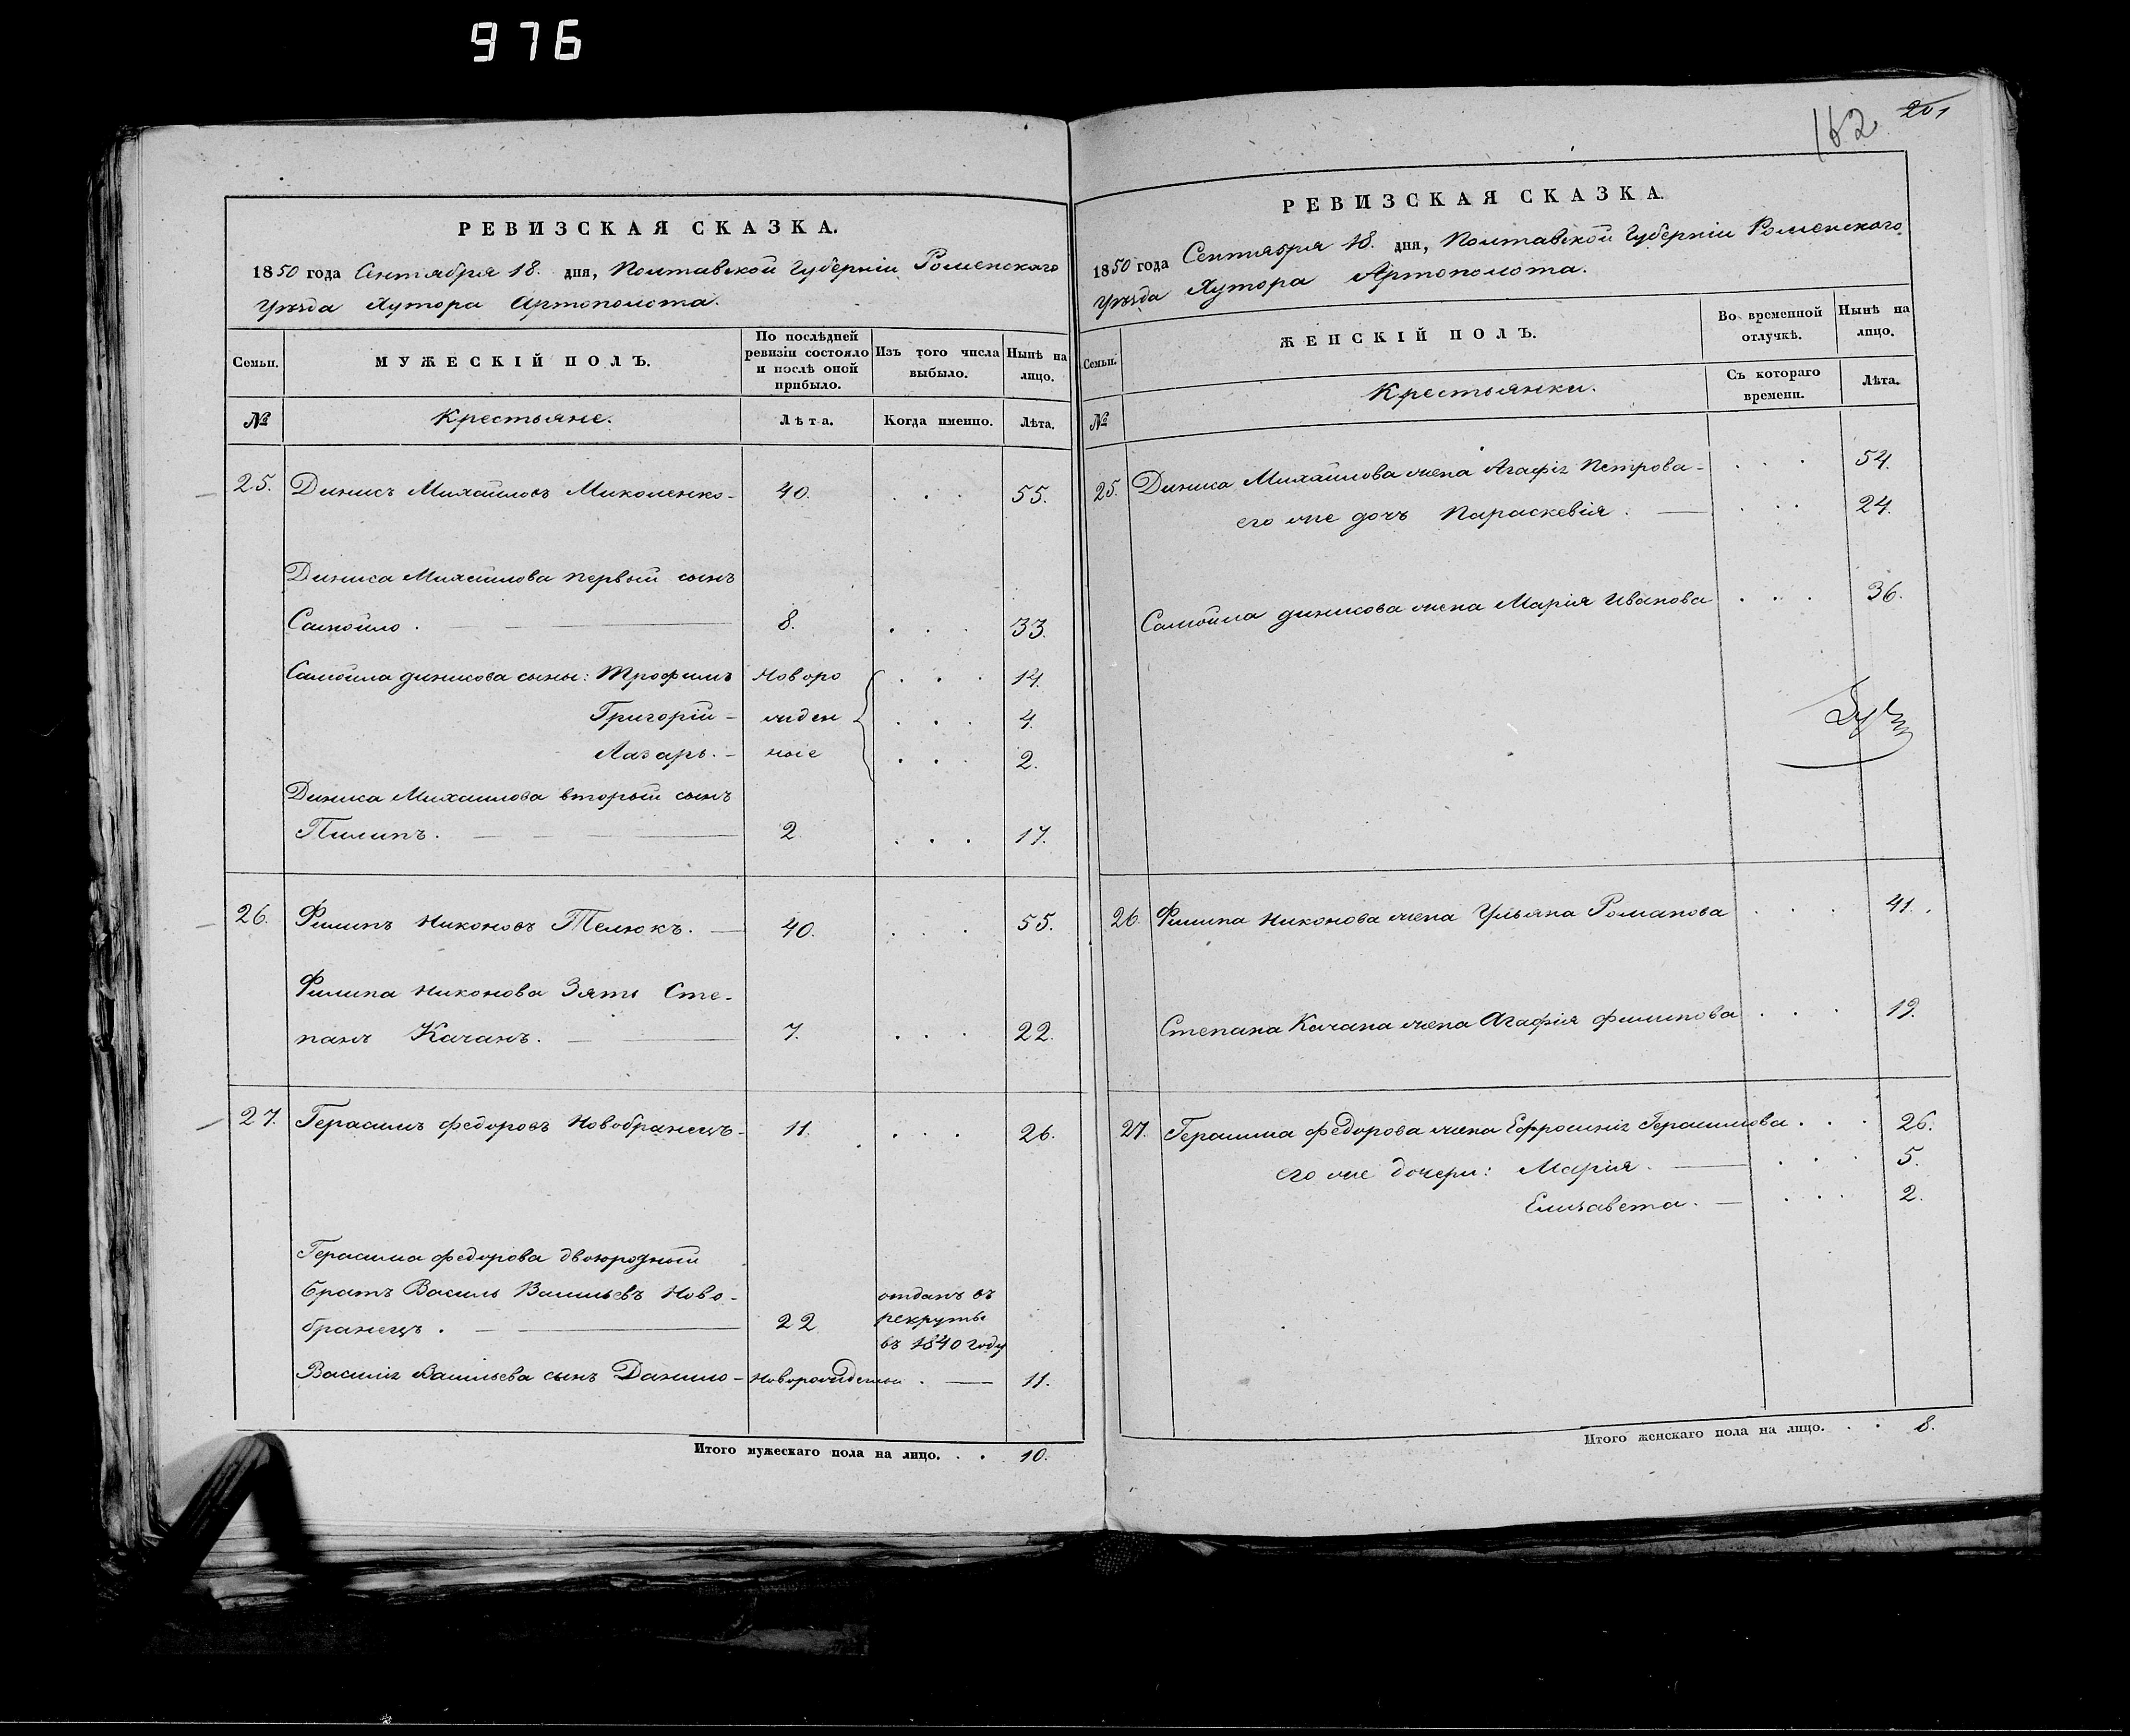 976
РЕВИЗСКАЯ СКАЗКА.
1850 года Сентября 18. дня, Полтавской Губерніи Роменскаго
Уѣзда Хутора Артополота.
Семьи.
МУЖЕСКІЙ ПОЛЪ.
По послѣдней ревизіи состояло и послѣ оной прибыло.
Изъ того числа выбыло.
Нынѣ на лицо.
№
Крестьяне.
Лѣта.
Когда именно.
Лѣта.
25. Динисъ Михайловъ Миколенко - 40. . . . 55.
Диниса Михайлова первый сынъ
Самойло . 8. . . . 33.
Самойла динисова сыны: Трофимъ Новоро . . . 14.
Григорій - жден . . . 4.
Лазарь. - ные . . . 2.
Диниса Михайлова вторый сынъ
Пилипъ. 2. . . . 17.
26. Филипъ Никоновъ Телюкъ. 40. . . . 55.
Филипа Никонова Зять Сте-
панъ Качанъ. 7. . . . 22.
27. Герасимъ федоровъ Новобранецъ - 11. . . . 26.
Герасима федорова двоюродный
братъ Василь Васильевъ Ново- отданъ въ
бранецъ . 22 рекруты
въ 1840 году
Василія Васильева сынъ Данило - Новорожденый . 11.
Итого мужескаго пола на лицо. . . 10.
162 201
РЕВИЗСКАЯ СКАЗКА.
1850 года Сентября 18. дня, Полтавской Губерніи Роменскаго
Уѣзда Хутора Артополота.
Семьи.
ЖЕНСКІЙ ПОЛЪ.
Во временной отлучкѣ.
Нынѣ на лицо.
№
Крестьянки.
Съ котораго времени.
Лѣта.
25. Диниса Михайлова жена Агафія Петрова - . . . 54.
его же дочь Параскевія . . . . 24.
Самойла динисова жена Марія Иванова . . . 36.
26. Филипа Никонова жена Ульяна Романова . . . 41.
Степана Качана жена Агафія филипова . . . 19.
27. Герасима федорова жена Ефросинія Герасимова . . . 26.
его же дочери: Марія . . . . 5.
Елизавета. - . . . 2.
Итого женскаго пола на лицо. . . 8.